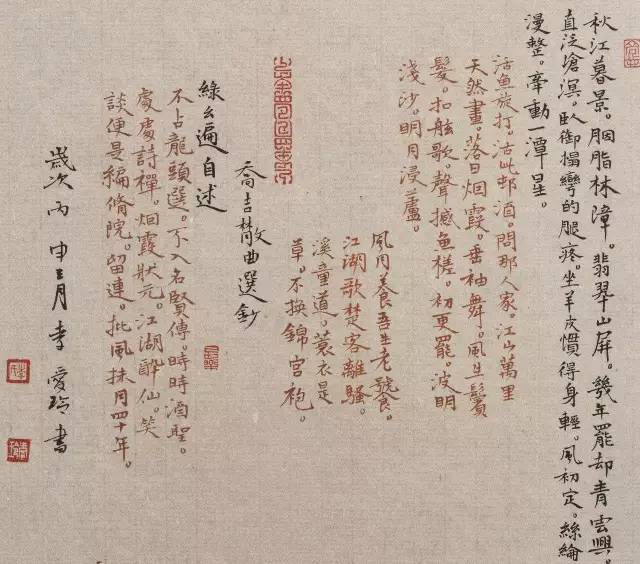 秋江暮景。胭脂林障。翡翠山屏。幾年罷却青雲興。
直泛滄溟。臥御榻彎的腿疼。坐羊皮慣得身輕。風初定。絲綸
漫整。牽動一潭星。
活魚旋打。沽些邨酒。問那人家。江山萬里
天然畫。落日烟霞。垂袖舞。風生鬢
髮。扣舷歌。聲撼魚槎。初更罷。波明
淺沙。明月浸蘆。
風月養吾生老饕。
江湖歌楚客離騷。
溪童道。蓑衣是
草。不換錦宮袍。
喬吉散曲選鈔
綠幺遍自述
不占龍頭選。不入名賢傳。時時酒聖。
處處詩禪。烟霞狀元。江湖醉仙。笑
談便是編脩院。留連。批風抹月四十年。
歲次丙申三月李愛玲書